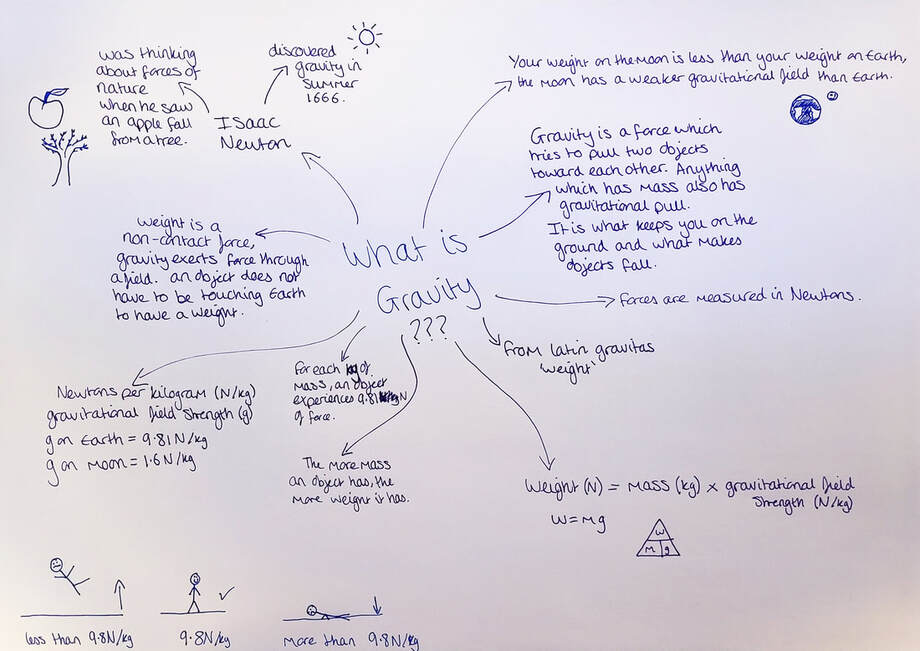 What is
Gravity
???
Isaac
Newton
was thinking
about forces of
nature
when he saw
an apple fall
from a tree.
discovered
gravity in
summer
1666.
Your weight on the moon is less than your weight on Earth,
the moon has a weaker gravitational field than Earth.
Gravity is a force which
tries to pull two objects
toward each other. Anything
which has mass also has
gravitational pull.
It is what keeps you on the
ground and what makes
objects fall.
Forces are measured in Newtons.
from latin gravitas
'weight'
Weight (N) = mass (kg) × gravitational field
strength (N/kg)
W = mg
W
m g
The more mass
an object has, the
more weight it has.
For each kg of
mass, an object
experiences 9.81 N
of force.
Newtons per kilogram (N/kg)
gravitational field strength (g)
g on Earth = 9.81 N/kg
g on moon = 1.6 N/kg
Weight is a
non-contact force,
gravity exerts force through
a field. an object does not
have to be touching Earth
to have a weight.
less than 9.8N/kg
9.8N/kg
more than 9.8N/kg